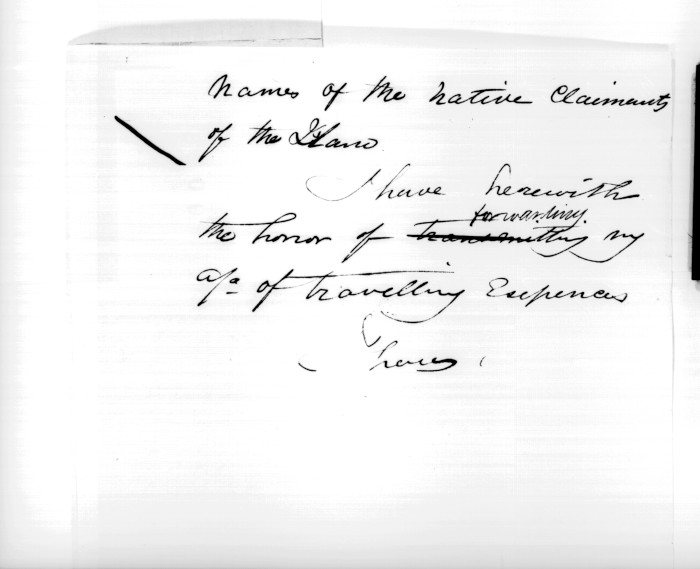 names of the native Claimants
of the Island
I have herewith
forwarding
the honor of transmitting my
a/c of travelling Expences
I have